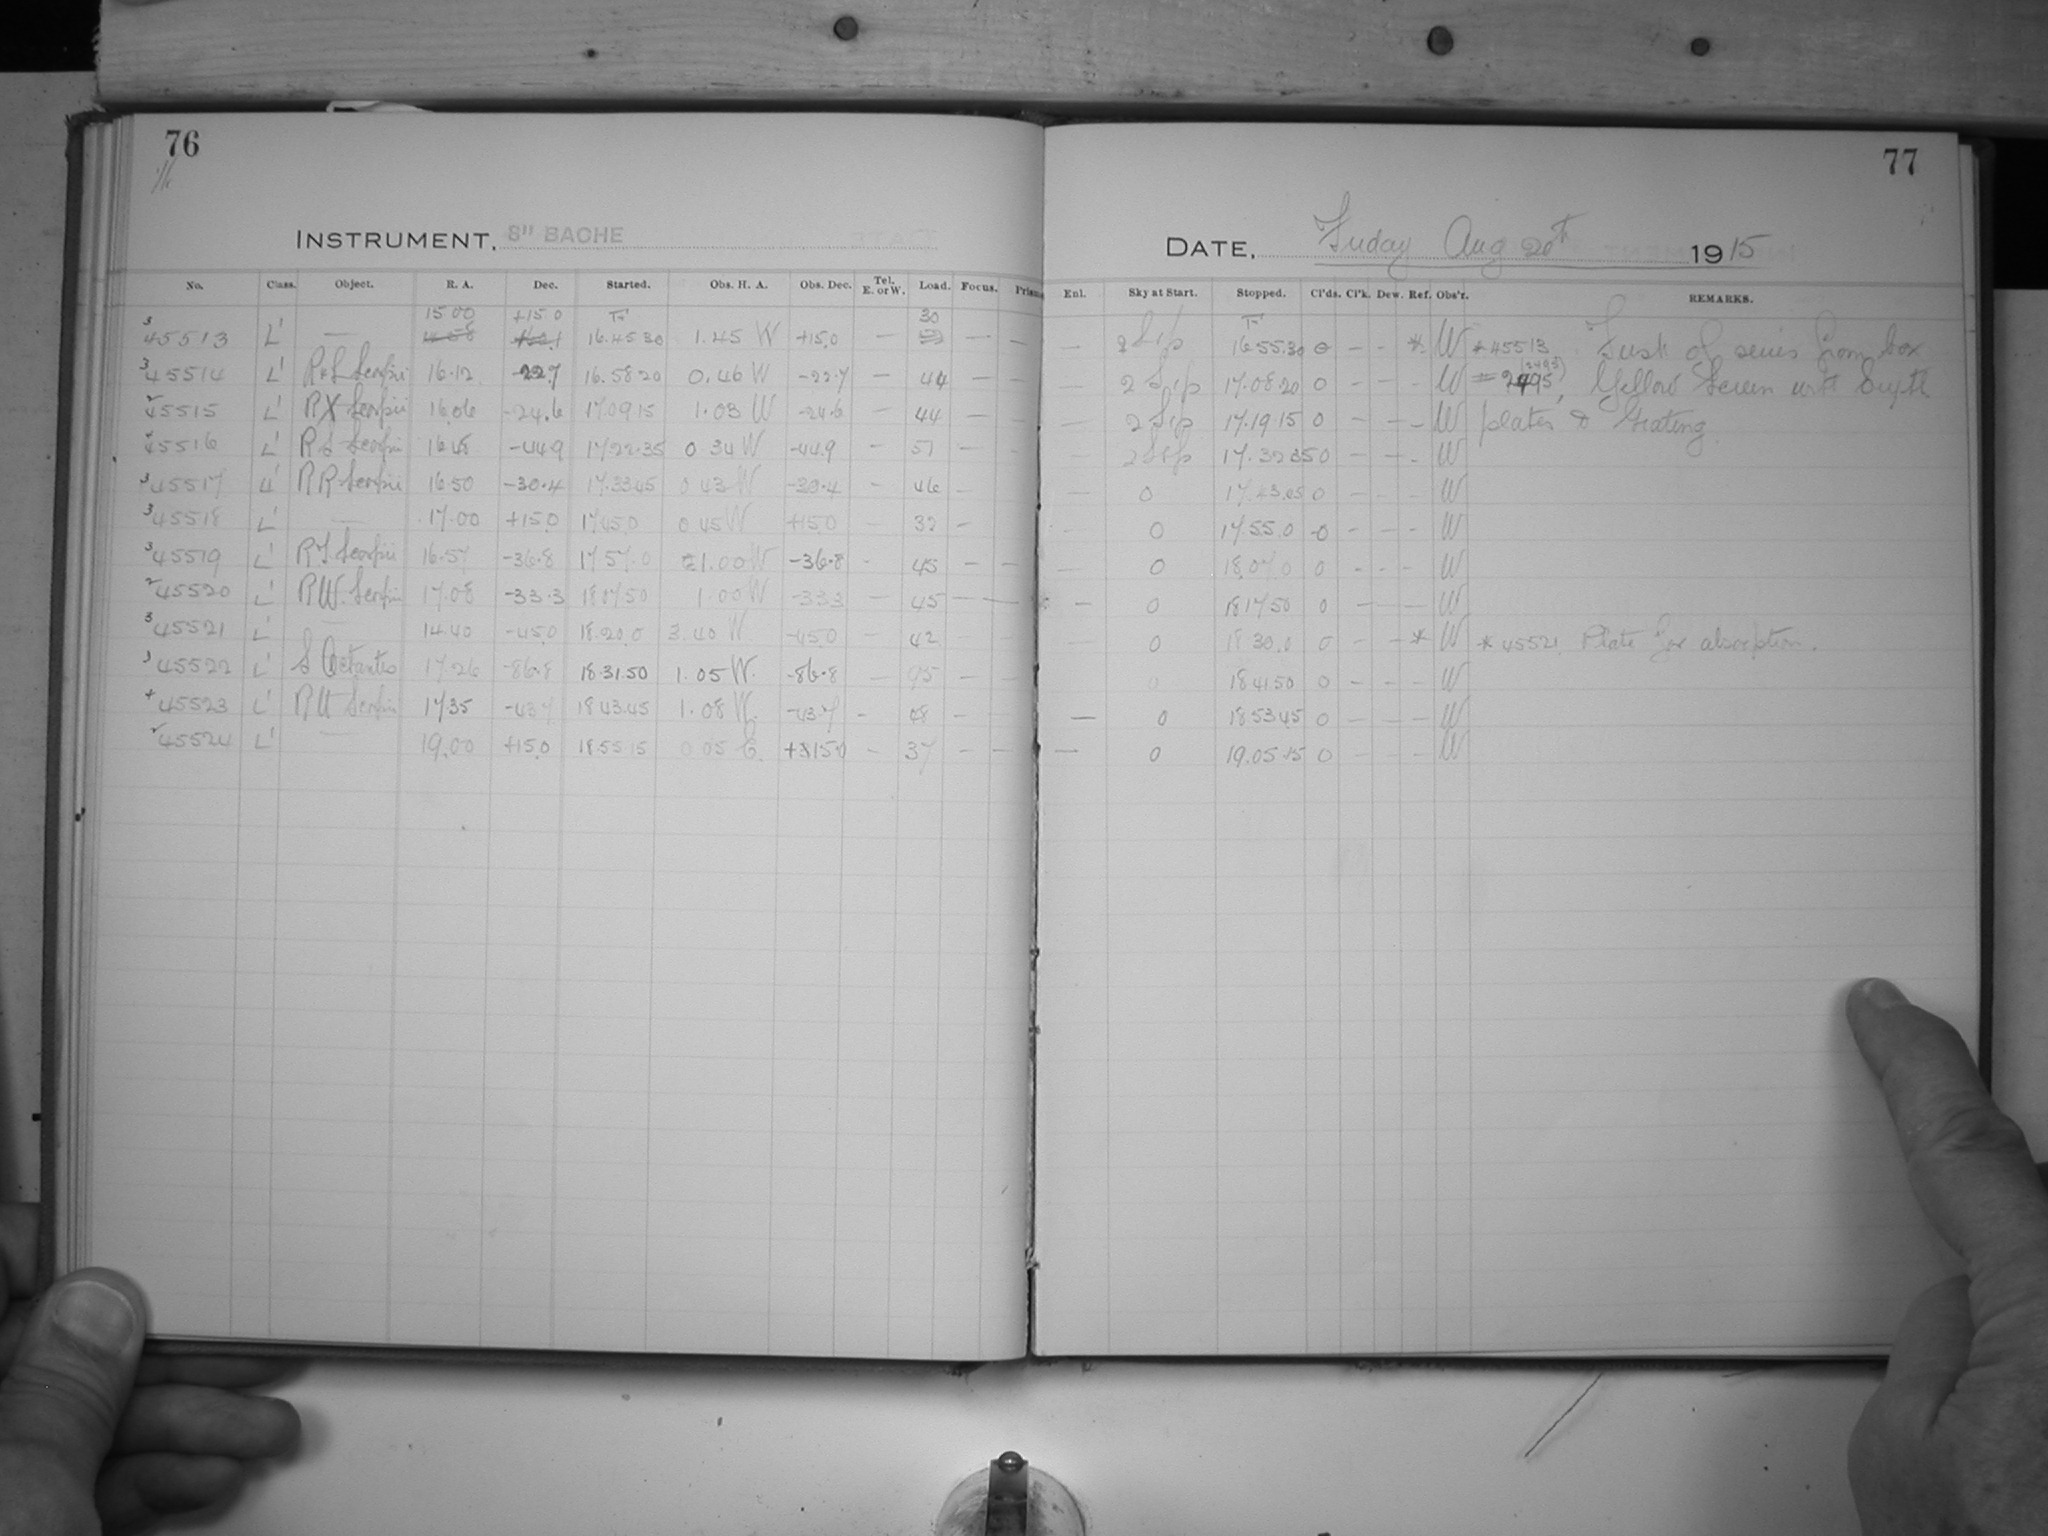 76
77
INSTRUMENT, 8" BACHE
DATE, Friday Aug 20th 1915
No. Class. Object. R. A. Dec. Started. Obs. H. A. Obs. Dec. Tel. E. or W. Load. Focus. Prism Enl. Sky at Start. Stopped. Cl'ds. Cl'k. Dew. Ref. Obs'r. REMARKS.
15 00 +15.0 30
3 45513 L' — 16.45 30 1.45 W +15.0 — — — — 16 55.30 0 — — * W * 45513 First of series from box
3 45514 L' Scorpii 16.12 -22.7 16.58 20 0.46 W -22.7 — 44 — — — 2 17.08.20 0 — — W Yellow Screen with
2 45515 L' RX Scorpii 16.06 -24.6 17.09 15 1.03 W -24.6 — 44 — — — 2 17.19.15 0 — — — W plates & Grating
45516 L' RS Scorpii 16.48 -44.9 17.22.35 0 34 W -44.9 — 51 — — — 2 17.32 35 0 — — — W
3 45517 L' RR Scorpii 16.50 -30.4 17.33 45 0 43 W -30.4 — 46 — — 0 0 — — — W
3 45518 L' — 17.00 +15.0 17.45.0 0 45 W +15.0 — 32 — — 0 17.55.0 0 — — — W
3 45519 L' RT Scorpii 16.57 -36.8 17 57.0 1.00 W -36.8 — 45 — — — 0 18.07.0 0 — — — W
2 45520 L' RW. Scorpii 17.08 -33.3 1.00 W -33.3 — 45 — — — 0 18 17 50 0 — — — W
3 45521 L' — 14.40 -45.0 18.20.0 3.40 W -45.0 — 42 — 0 18 30.0 0 — — * W * 45521 Plate for absorption.
3 45522 L' S Octantis 17.26 -86.8 18.31.50 1.05 W. -86.8 — 95 — — 18 41 50 0 — — — W
45523 L' RU Scorpii 17.35 -43.7 18 43.45 1.08 W. -43.7 — 48 — — — 0 18 53 45 0 — — — W
2 45524 L' — 19.00 +15.0 18 55 15 0 05 E. — 37 — — — 0 19.05.15 0 — — — W